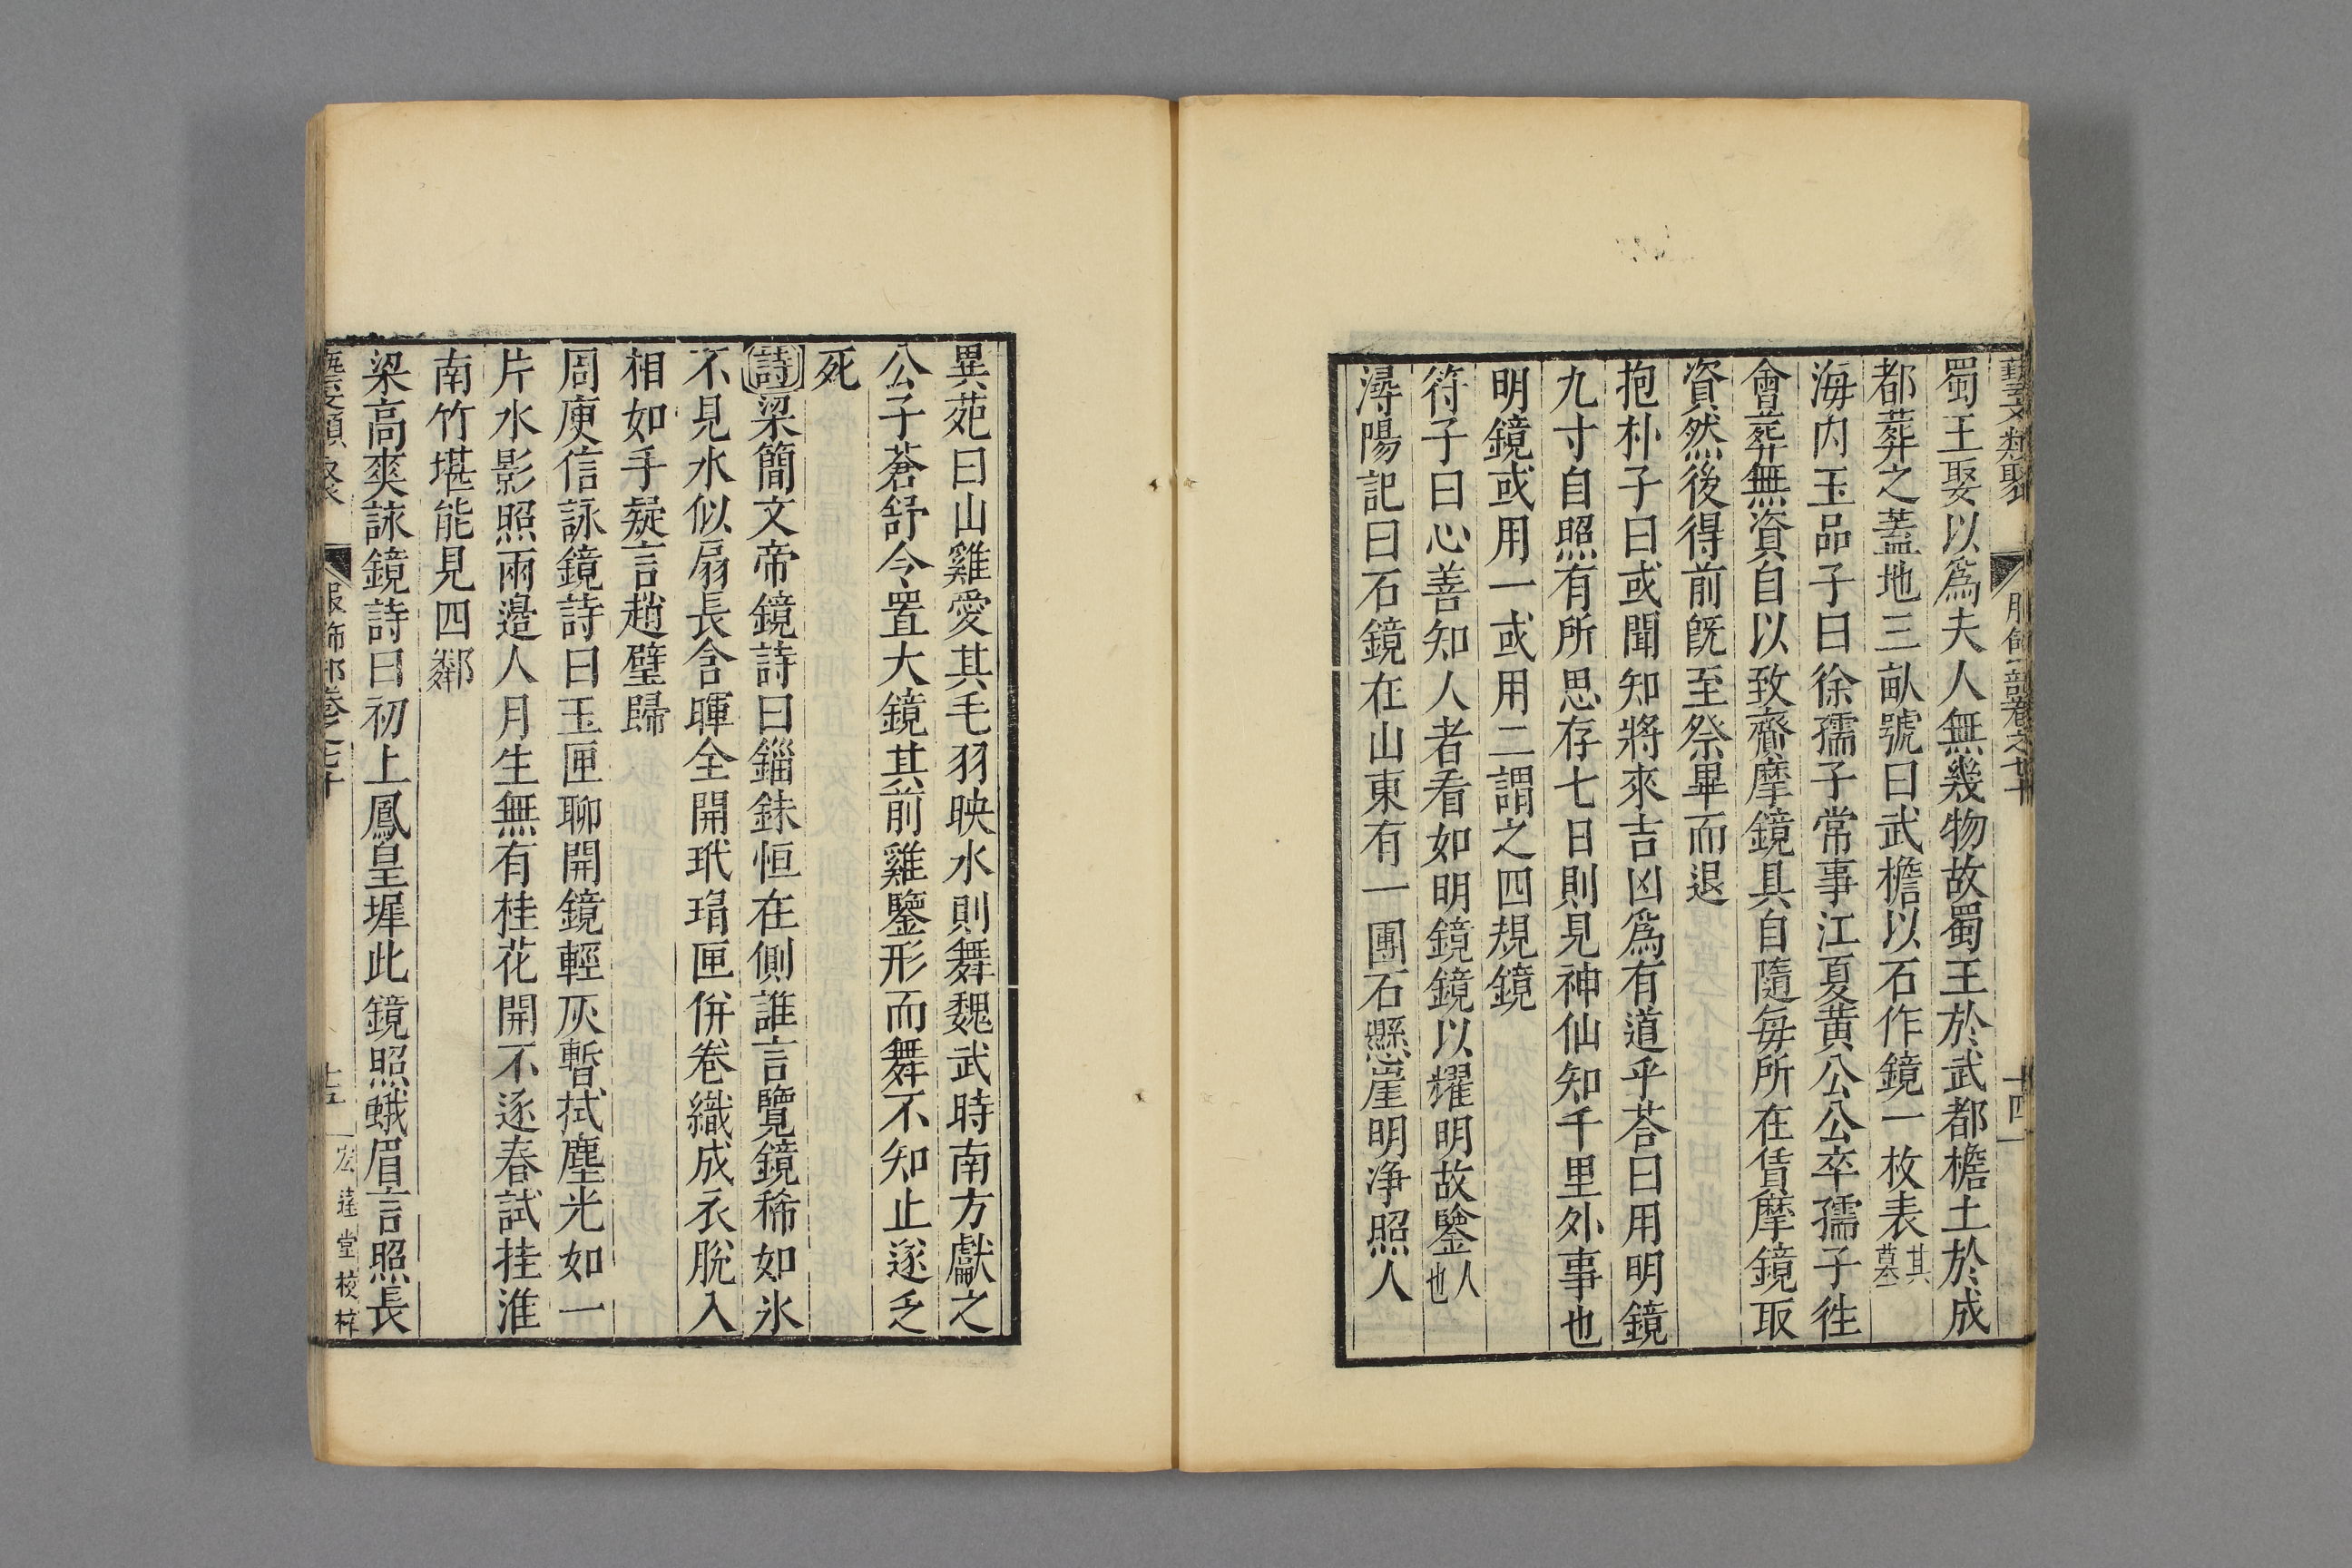 藝文類聚 服飾部卷之七十 十四
蜀王娶以爲夫人無幾物故蜀王於武都檐土於成
都葬之蓋地三畝號曰武檐以石作鏡一枚表其墓
海内玉品子曰徐孺子常事江夏黃公公卒孺子徃
會葬無資自以致齎摩鏡具自隨每所在賃摩鏡取
資然後得前旣至祭畢而退
抱朴子曰或聞知將來吉凶爲有道乎荅曰用明鏡
九寸自照有所思存七日則見神仙知千里外事也
明鏡或用一或用二謂之四規鏡
符子曰心善知人者看如明鏡鏡以耀明故鑒人也
潯陽記曰石鏡在山東有一團石懸崖明淨照人
異苑曰山雞愛其毛羽映水則舞魏武時南方獻之
公子蒼舒令置大鏡其前雞鑒形而舞不知止遂乏
死
詩梁簡文帝鏡詩曰錙銖恒在側誰言覽鏡稀如氷
不見水似扇長含暉全開玳瑁匣併卷織成衣脫入
相如手疑言趙璧歸
周庾信詠鏡詩曰玉匣聊開鏡輕灰暫拭塵光如一
片水影照兩邉人月生無有桂花開不逐春試挂淮
南竹堪能見四鄰
梁高爽詠鏡詩曰初上鳳皇墀此鏡照蛾眉言照長
藝文類聚 服飾部卷之七十 十五 宏逹堂校梓